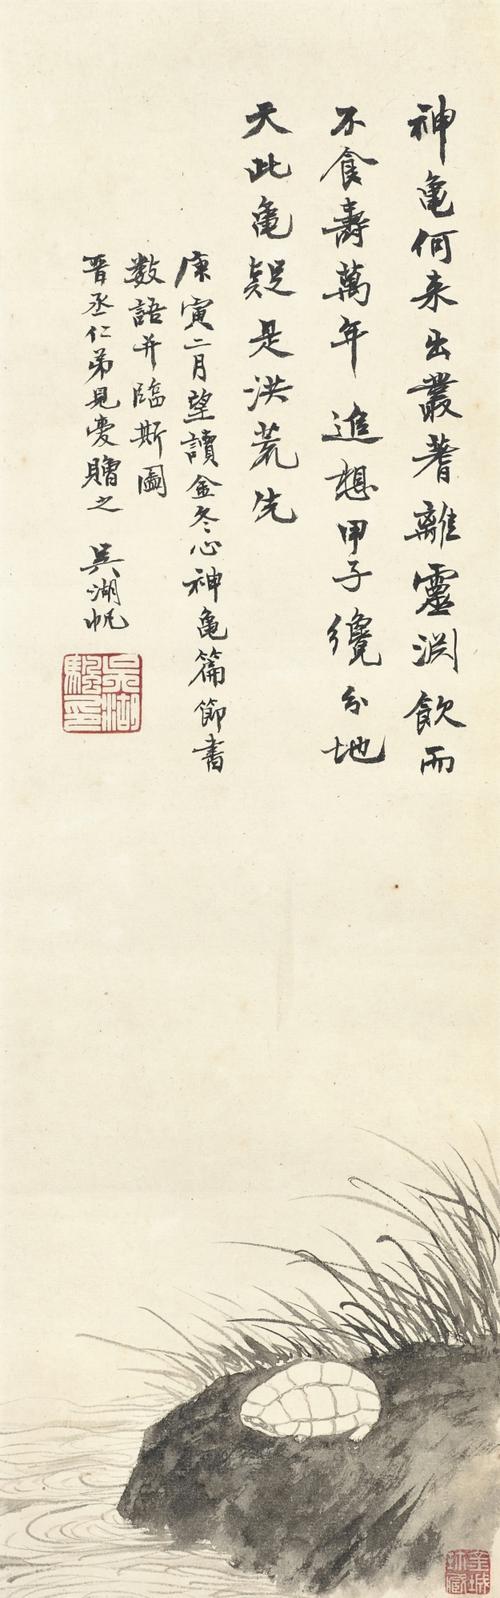 神亀何来出叢蓍離靈淵飲而
不食壽萬年追想甲子纔分地
天此亀疑是洪荒先
庚寅二月望讀金冬心神亀篇節書
数語并臨斯圖
晋丞仁弟見愛贈之 吳湖帆
吳湖颿印